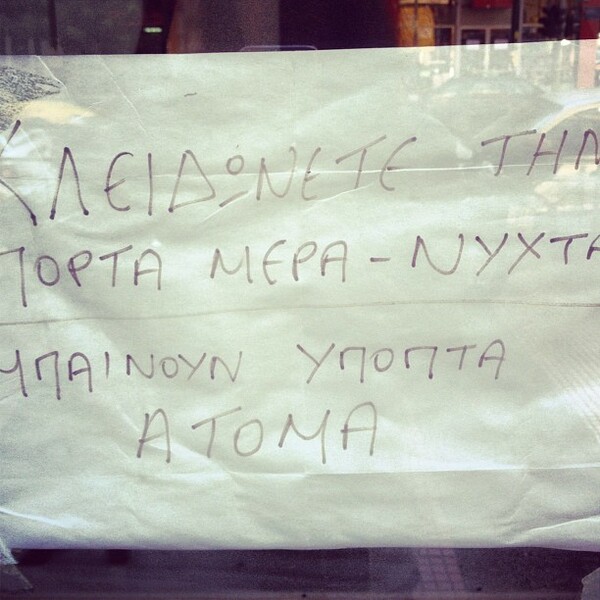 ΚΛΕΙΔΩΝΕΤΕ ΤΗΝ
ΠΟΡΤΑ ΜΕΡΑ - ΝΥΧΤΑ
ΜΠΑΙΝΟΥΝ ΥΠΟΠΤΑ
ΑΤΟΜΑ